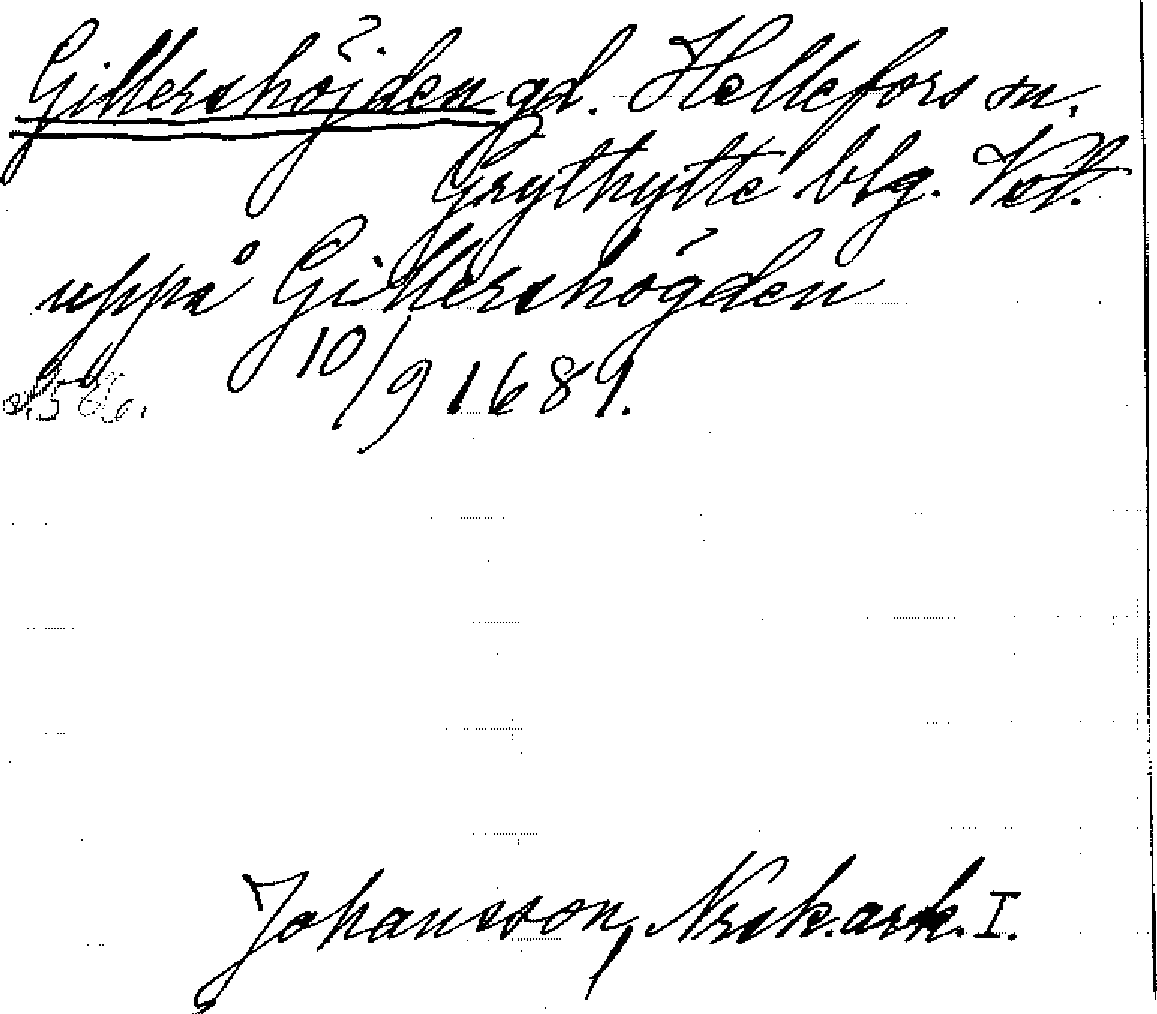 ?
Gillershöjden gd. Hellefors sn,
Grythytte blg. Vstl.
uppå Gillershögden
10/9 1689.
Johansson, Norsk.ark. I.